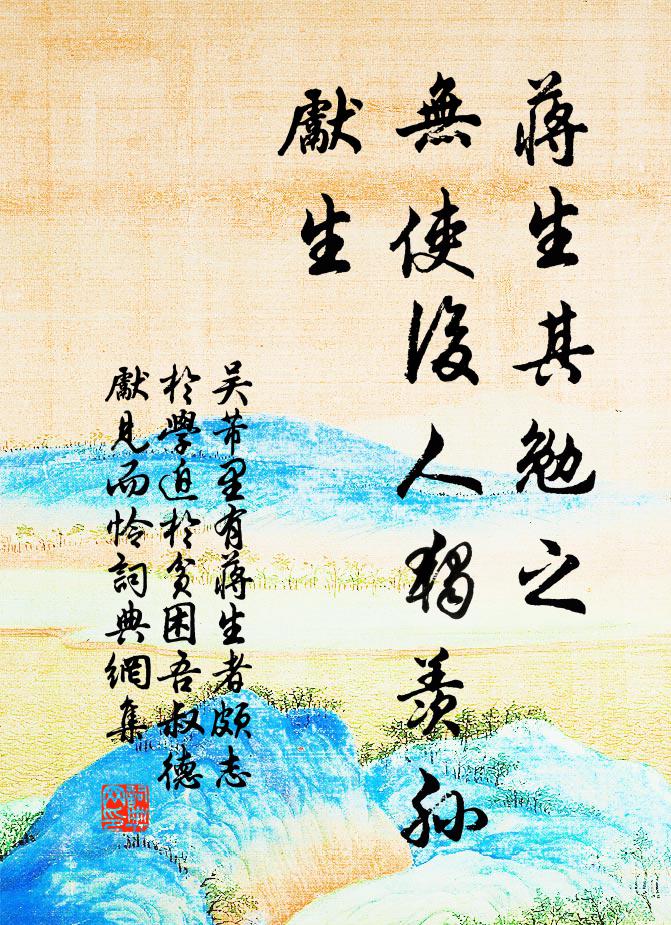 蔣生其勉之
無使後人獨羨孫
獻生
吴芾里有蔣生者頗志
於學迫於貧困吾叔德
獻見而怜詞典網集